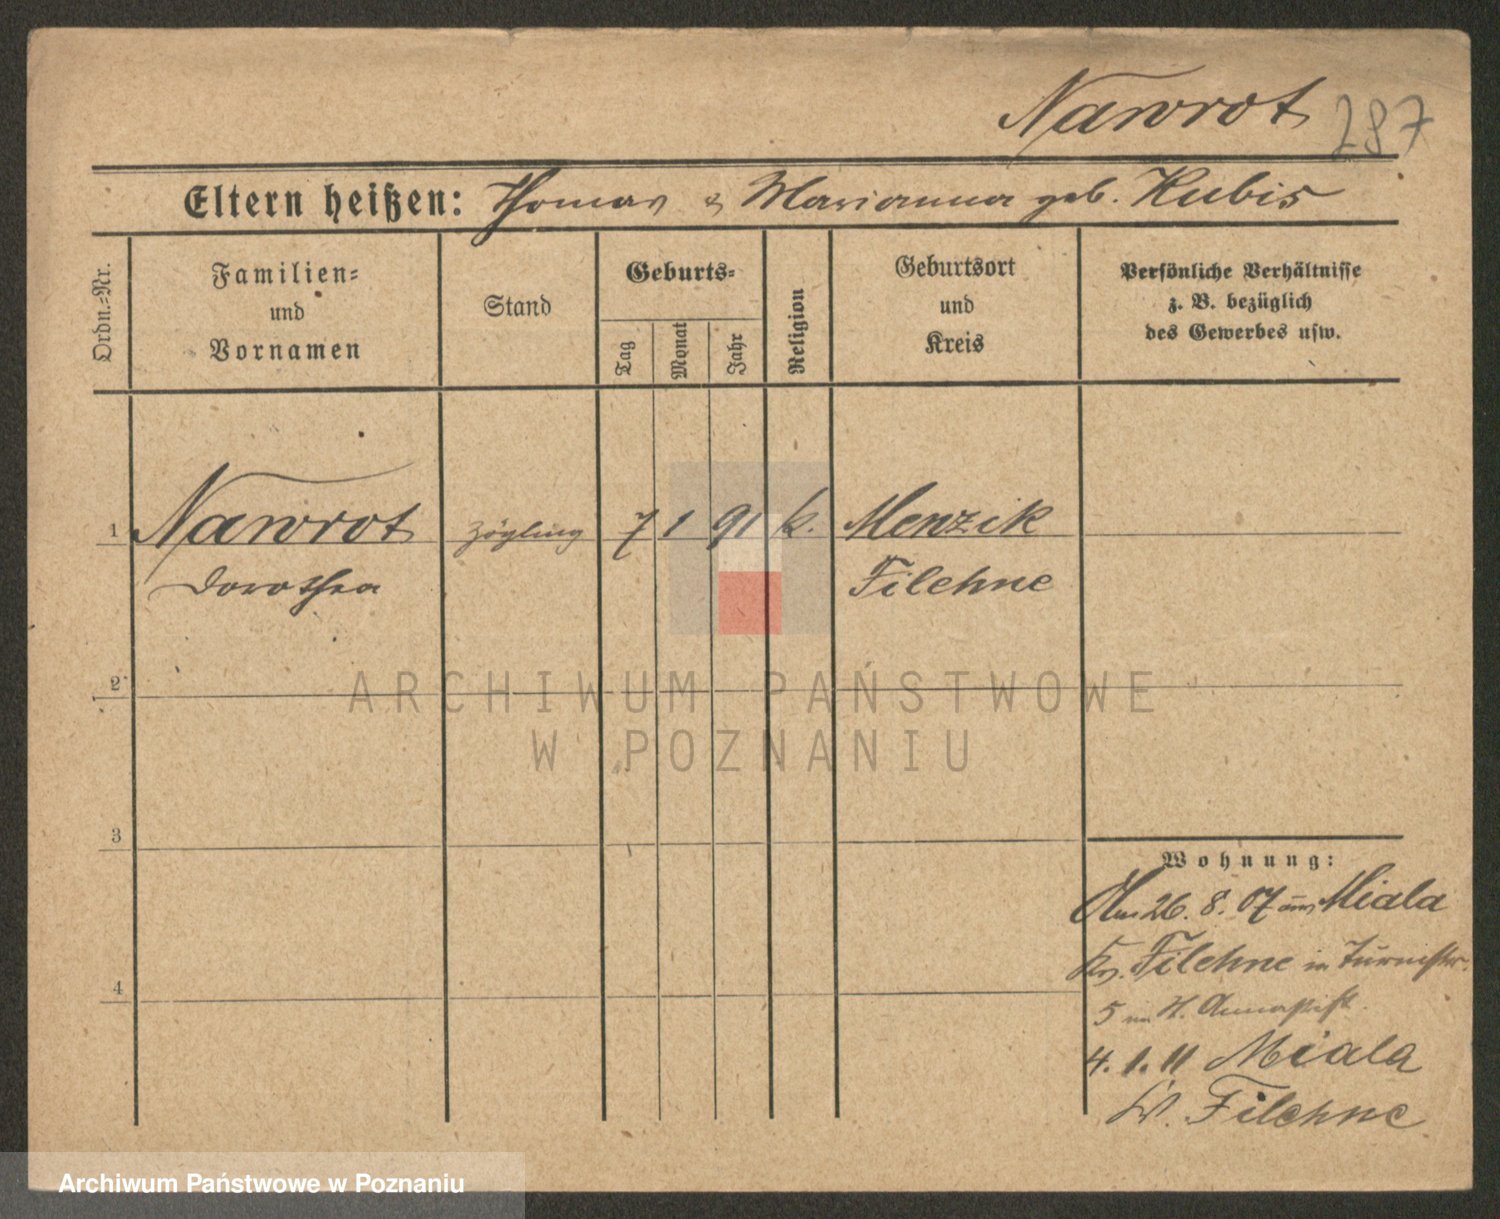 Nawrot 287
Eltern heißen: Thomas & Marianna geb. Kubis
Ordn.=Nr.
Familien=
und
Vornamen
Stand
Geburts=
Tag
Monat
Jahr
Religion
Geburtsort
und
Kreis
Persönliche Verhältnisse
z. B. bezüglich
des Gewerbes usw.
1 Nawrot Zögling 7 1 91 k. Menzik
Dorothea Filehne
2
3
4
Wohnung:
Am 26. 8. 07 aus Miala
Kr. Filehne in
5 im St. Annastift
4. 1. 11 Miala
Kr. Filehne
ARCHIWUM PAŃSTWOWE
W POZNANIU
Archiwum Państwowe w Poznaniu